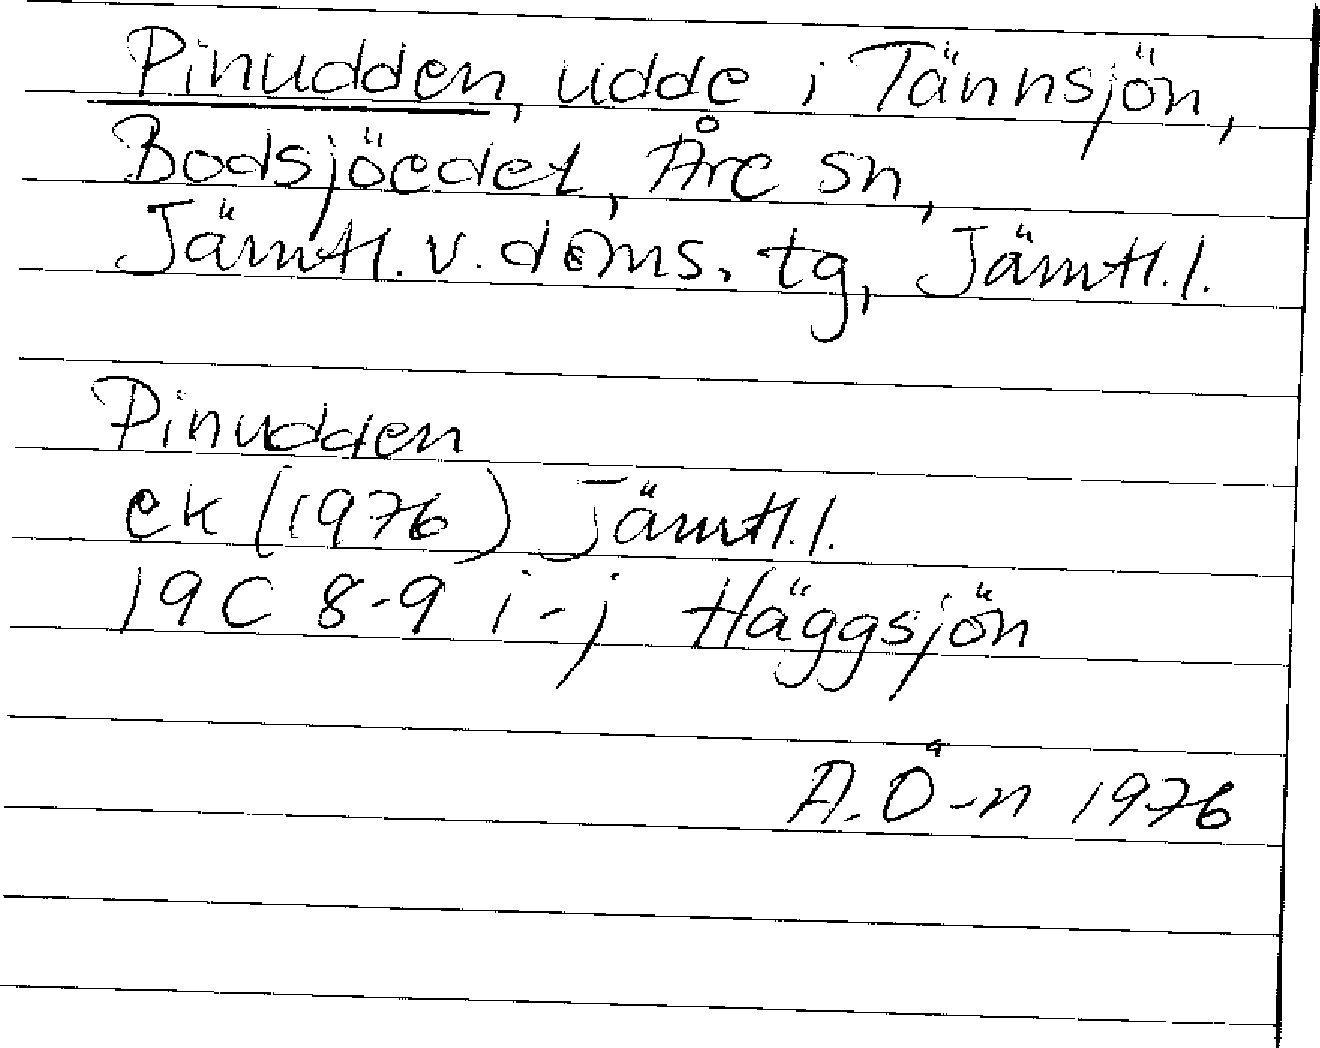 Pinudden, udde i Tännsjön,
Bodsjöedet, Åre sn,
Jämtl. v. doms. tg, Jämtl. l.
Pinudden
ek (1976) Jämtl. l.
19C 8-9 i-j Häggsjön
A. Ö-n 1976